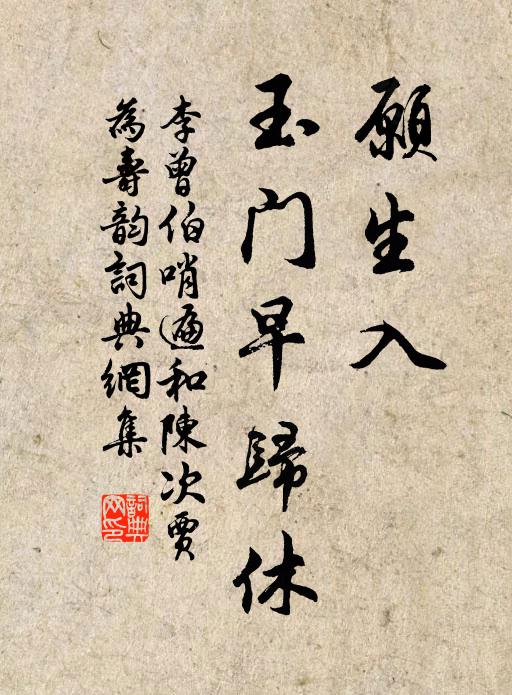 願生入
玉门早歸休
李曾伯哨遍和陳次賈
為壽韵詞典網集
詞典网印